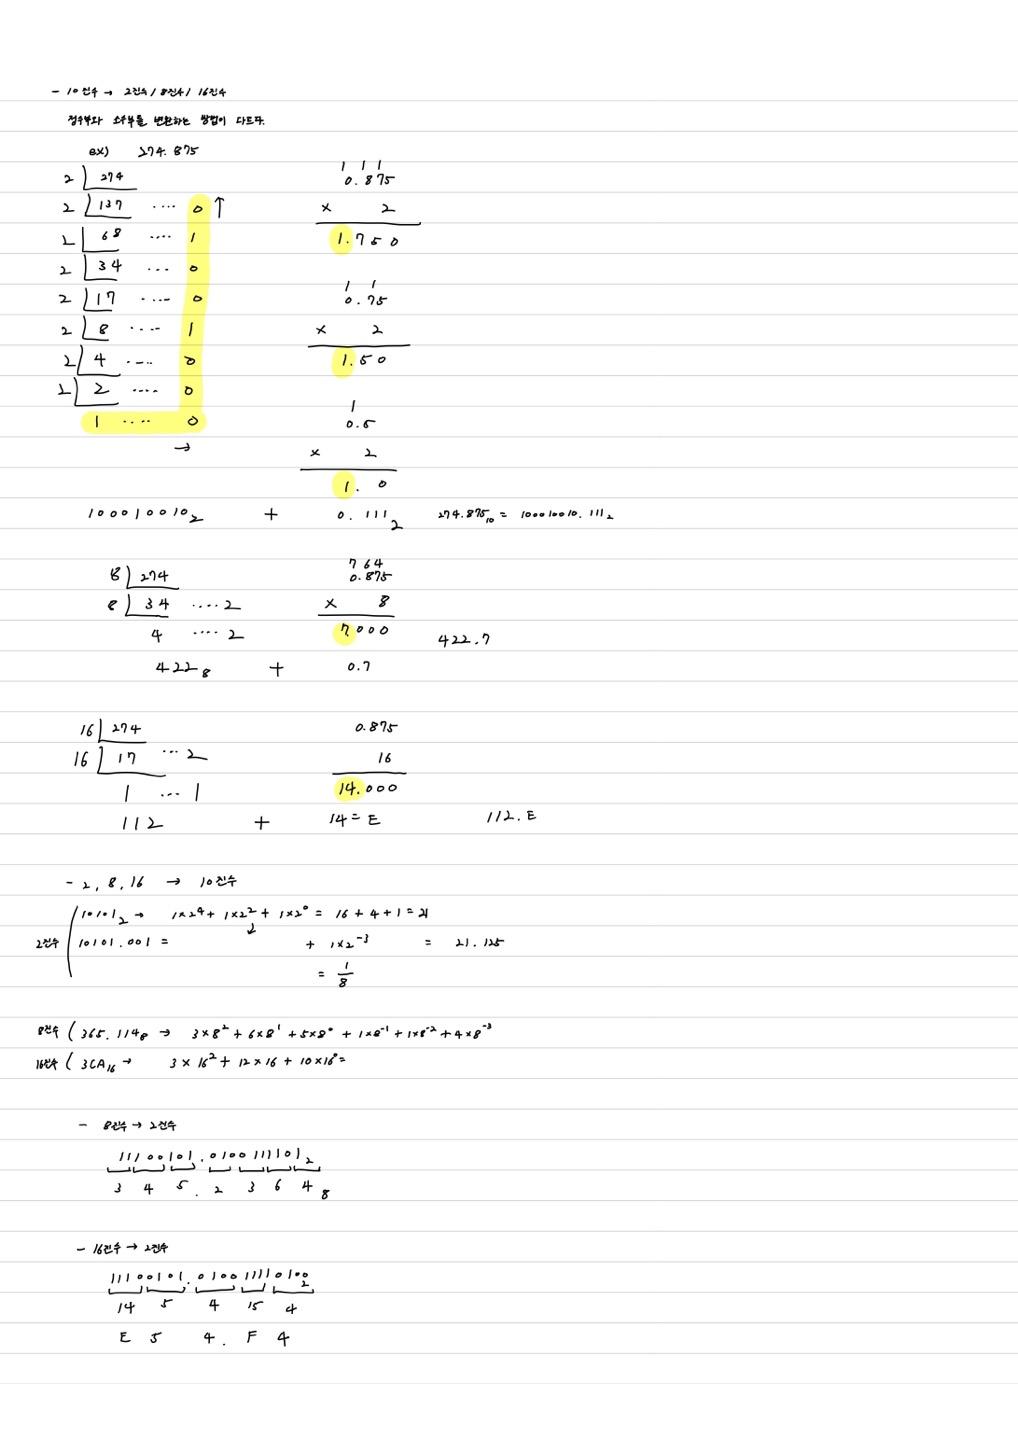 - 10진수 → 2진수 / 8진수 / 16진수
정수부와 소수부를 변환하는 방법이 다르다.
ex) 274.875
2 274
2 137 .... 0 ↑
2 68 .... 1
2 34 ... 0
2 17 .... 0
2 8 .... 1
2 4 .... 0
2 2 .... 0
1 .... 0
→
1 1 1
0.875
x 2
1.750
1 1
0.75
x 2
1.50
1
0.5
x 2
1.0
100010010₂ + 0.111₂ 274.875₁₀ = 100010010.111₂
8 274
8 34 ....2
4 ....2
7 6 4
0.875
x 8
7000
422.7
422₈ + 0.7
16 274
16 17 ...2
1 ...1
0.875
16
14.000
112 + 14=E 112.E
- 2, 8, 16 → 10진수
2진수
10101₂ → 1x2⁴ + 1x2² + 1x2⁰ = 16 + 4 + 1 = 21
10101.001 = ↓ + 1x2⁻³ = 21.125
= 1/8
8진수 ( 365.114₈ → 3x8² + 6x8¹ + 5x8⁰ + 1x8⁻¹ + 1x8⁻² + 4x8⁻³
16진수 ( 3CA₁₆ → 3 x 16² + 12 x 16 + 10 x 16⁰ =
- 8진수 → 2진수
11100101.0100111101₂
3 4 5 . 2 3 6 4 ₈
- 16진수 → 2진수
11100101.010011110100₂
14 5 4 15 4
E 5 4 . F 4